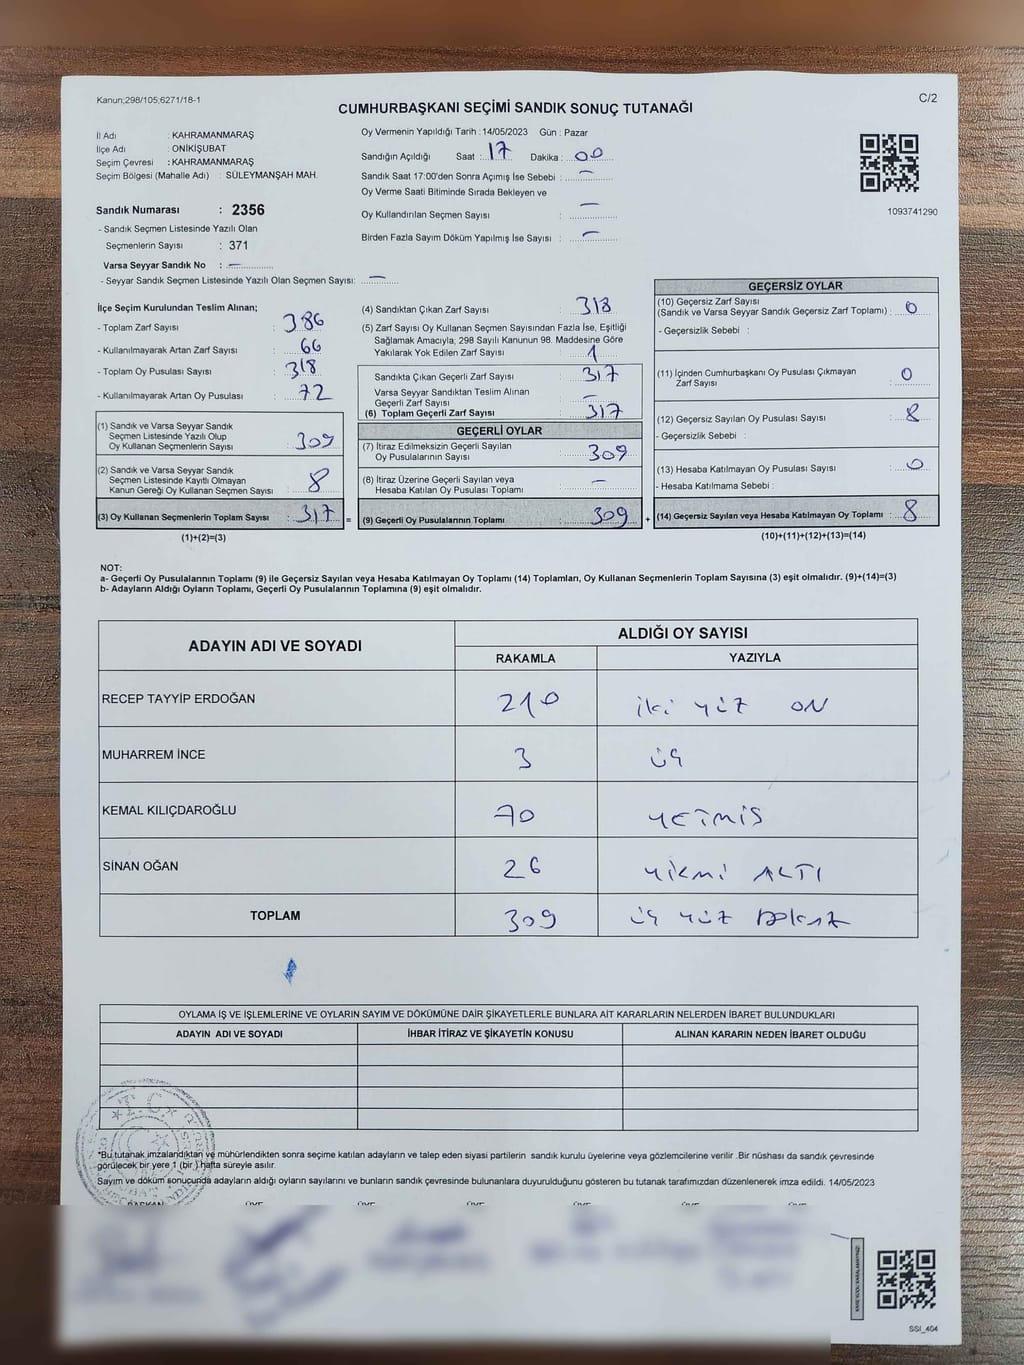 Kanun;298/105;6271/18-1
C/2
CUMHURBAŞKANI SEÇİMİ SANDIK SONUÇ TUTANAĞI
İl Adı : KAHRAMANMARAŞ
İlçe Adı : ONİKİŞUBAT
Seçim Çevresi : KAHRAMANMARAŞ
Seçim Bölgesi (Mahalle Adı) : SÜLEYMANŞAH MAH.
Sandık Numarası : 2356
- Sandık Seçmen Listesinde Yazılı Olan
Seçmenlerin Sayısı : 371
Varsa Seyyar Sandık No : –
- Seyyar Sandık Seçmen Listesinde Yazılı Olan Seçmen Sayısı: –
Oy Vermenin Yapıldığı Tarih : 14/05/2023 Gün : Pazar
Sandığın Açıldığı Saat : 17 Dakika : 00
Sandık Saat 17:00'den Sonra Açımış İse Sebebi : –
Oy Verme Saati Bitiminde Sırada Bekleyen ve
Oy Kullandırılan Seçmen Sayısı : –
Birden Fazla Sayım Döküm Yapılmış İse Sayısı : –
1093741290
İlçe Seçim Kurulundan Teslim Alınan;
- Toplam Zarf Sayısı : 386
- Kullanılmayarak Artan Zarf Sayısı : 66
- Toplam Oy Pusulası Sayısı : 318
- Kullanılmayarak Artan Oy Pusulası : 72
(1) Sandık ve Varsa Seyyar Sandık
Seçmen Listesinde Yazılı Olup
Oy Kullanan Seçmenlerin Sayısı : 309
(2) Sandık ve Varsa Seyyar Sandık
Seçmen Listesinde Kayıtlı Olmayan
Kanun Gereği Oy Kullanan Seçmen Sayısı : 8
(3) Oy Kullanan Seçmenlerin Toplam Sayısı : 317 =
(1)+(2)=(3)
(4) Sandıktan Çıkan Zarf Sayısı : 318
(5) Zarf Sayısı Oy Kullanan Seçmen Sayısından Fazla İse, Eşitliği
Sağlamak Amacıyla; 298 Sayılı Kanunun 98. Maddesine Göre
Yakılarak Yok Edilen Zarf Sayısı : 1
Sandıkta Çıkan Geçerli Zarf Sayısı : 317
Varsa Seyyar Sandıktan Teslim Alınan
Geçerli Zarf Sayısı : –
(6) Toplam Geçerli Zarf Sayısı : 317
GEÇERLİ OYLAR
(7) İtiraz Edilmeksizin Geçerli Sayılan
Oy Pusulalarının Sayısı : 309
(8) İtiraz Üzerine Geçerli Sayılan veya
Hesaba Katılan Oy Pusulası Toplamı : –
(9) Geçerli Oy Pusulalarının Toplamı : 309 +
GEÇERSİZ OYLAR
(10) Geçersiz Zarf Sayısı
(Sandık ve Varsa Seyyar Sandık Geçersiz Zarf Toplamı) : 0
- Geçersizlik Sebebi :
(11) İçinden Cumhurbaşkanı Oy Pusulası Çıkmayan
Zarf Sayısı : 0
(12) Geçersiz Sayılan Oy Pusulası Sayısı : 8
- Geçersizlik Sebebi :
(13) Hesaba Katılmayan Oy Pusulası Sayısı : 0
- Hesaba Katılmama Sebebi :
(14) Geçersiz Sayılan veya Hesaba Katılmayan Oy Toplamı : 8
(10)+(11)+(12)+(13)=(14)
NOT:
a- Geçerli Oy Pusulalarının Toplamı (9) ile Geçersiz Sayılan veya Hesaba Katılmayan Oy Toplamı (14) Toplamları, Oy Kullanan Seçmenlerin Toplam Sayısına (3) eşit olmalıdır. (9)+(14)=(3)
b- Adayların Aldığı Oyların Toplamı, Geçerli Oy Pusulalarının Toplamına (9) eşit olmalıdır.
ADAYIN ADI VE SOYADI
ALDIĞI OY SAYISI
RAKAMLA YAZIYLA
RECEP TAYYİP ERDOĞAN 210 iki yüz ON
MUHARREM İNCE 3 üç
KEMAL KILIÇDAROĞLU 70 YETMİŞ
SİNAN OĞAN 26 YİRMİ ALTI
TOPLAM 309 üç yüz DOKUZ
OYLAMA İŞ VE İŞLEMLERİNE VE OYLARIN SAYIM VE DÖKÜMÜNE DAİR ŞİKAYETLERLE BUNLARA AİT KARARLARIN NELERDEN İBARET BULUNDUKLARI
ADAYIN ADI VE SOYADI İHBAR İTİRAZ VE ŞİKAYETİN KONUSU ALINAN KARARIN NEDEN İBARET OLDUĞU
T.C.
*Bu tutanak imzalandıktan ve mühürlendikten sonra seçime katılan adayların ve talep eden siyasi partilerin sandık kurulu üyelerine veya gözlemcilerine verilir .Bir nüshası da sandık çevresinde
görülecek bir yere 1 (bir ) hafta süreyle asılır.
Sayım ve döküm sonucunda adayların aldığı oyların sayılarını ve bunların sandık çevresinde bulunanlara duyurulduğunu gösteren bu tutanak tarafımızdan düzenlenerek imza edildi. 14/05/2023
BAŞKAN ÜYE ÜYE ÜYE ÜYE ÜYE
SSI_404